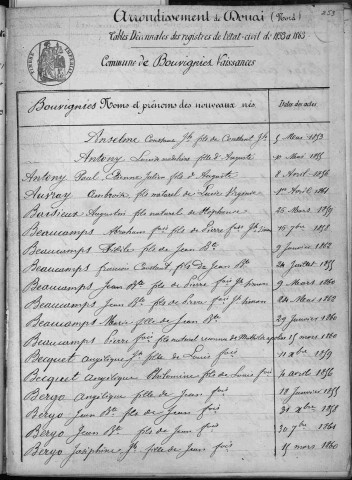 253
Arrondissement de Douai (Nord)
Tables Décennales des registres de l'état-civil de 1853 à 1863
Commune de Bouvignies Naissances
Bouvignies Noms et prénoms des nouveaux nés. Dates des actes
Anselme Constance Jh fils de Constant Jh 5 Mars 1853
Antony fille d'Auguste 10 Mai 1855
Antony Paul Etienne Julien fils d'Auguste 8 Avril 1856
Auvray Ambroise fils naturel de Virginie 1er Avril 1861
Barisieux Augustin fils naturel de Stéphanie 26 Mars 1857
Beaucamps Abraham fois fils de Pierre fois Jh 15 7bre 1858
Beaucamps fils de Jean Bte 9 Janvier 1862
Beaucamps Constant, fils de Jean Bte 24 Juillet 1855
Beaucamps Jean Bte fils de Pierre fois Jh Simon 9 Mars 1860
Beaucamps Jean Bte fils de Pierre fois Jh Simon 24 Mars 1860
Beaucamps Marie fille de Jean Bte 29 Janvier 1860
Beaucamps Pierre fois fils naturel reconnu de 15 mars 1860
Becquet Angélique Jh fille de Louis fois 11 Xbre 1853
Becquet Angélique Philomine fille de Louis fois 4 août 1856
Bergo Angélique fille de Jean fois 18 Janvier 1855
Bergo Jean Bte fils de Jean fois 31 Xbre 1858
Bergo Jean Bte fils de Jean fois 30 7bre 1861
Bergo Joséphine Jh fille de Jean fois 15 mars 1860